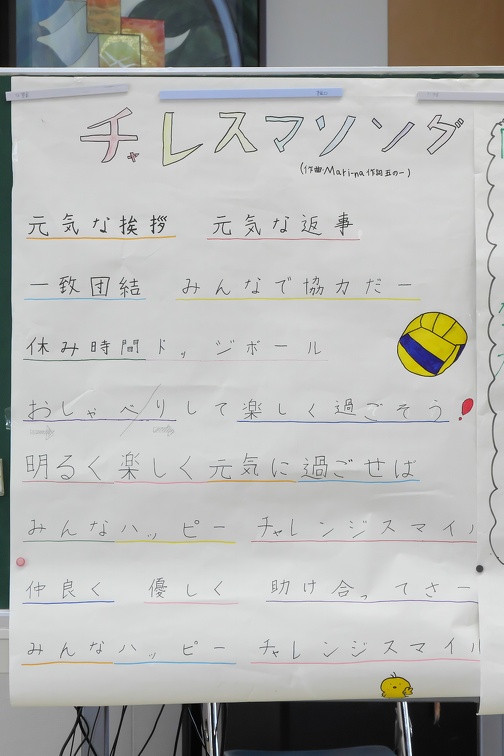 チャレスマソング
(作曲:Mari-na 作詞 五の一)
元気な挨拶 元気な返事
一致団結 みんなで協力だー
休み時間ドッジボール
おしゃべりして楽しく過ごそう!
明るく楽しく元気に過ごせば
みんなハッピー チャレンジスマイル
仲良く 優しく 助け合ってさー
みんなハッピー チャレンジスマイル